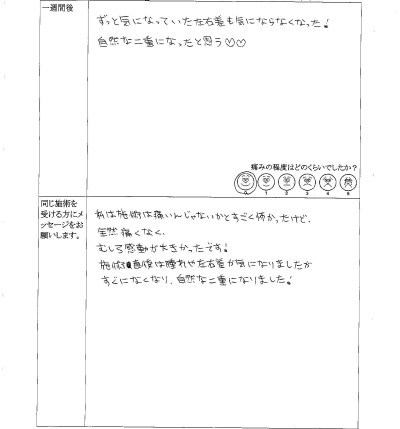 一週間後
ずっと気になっていた左右差も気にならなくなった!
自然な二重になったと思う♡♡
痛みの程度はどのくらいでしたか?
0 1 2 3 4 5
同じ施術を
受ける方にメ
ッセージをお
願いします。
私は施術は痛いんじゃないかとすごく怖かったけど、
全然痛くなく、
むしろ感動が大きかったです!
施術直後は腫れや左右差が気になりましたが
すぐになくなり、自然な二重になりました!